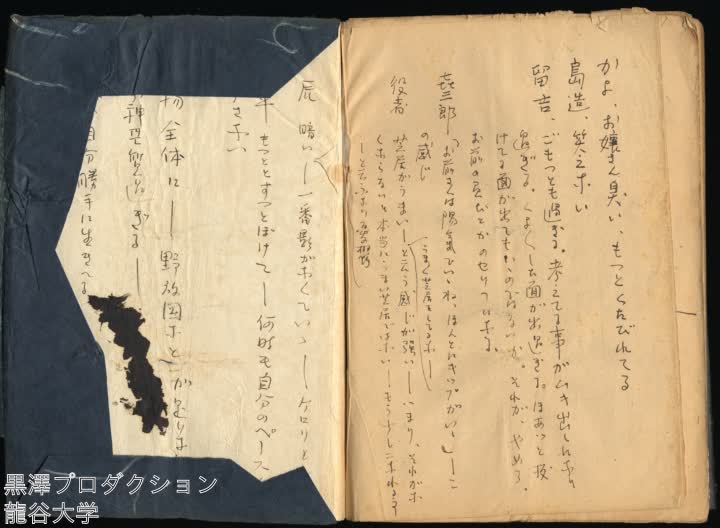 かよ、お嬢さん臭い、もつとくたびれてる
島造、笑えない
留吉、ごもつとも過ぎる。考えてる事がムキ出しに
過ぎる。くよくした面が出過ぎる。ほあつと抜
けてる面が出てもいゝのではないか。それが、やめろ、
お前の
喜三郎「お前さんは陽気でいゝね、ほんとにキップがいゝ」―こ
の感じ
うまく芝居をしてる
役者 芝居がうまい―と云う感じが強い―つまり、それが
くならないと本当にうまい芝居ではない―もう少し
―と云ふ
辰 暗い―一番影がなくていゝ―ケロリと
もつととすつとぼけて―何時も自分のペース
でない
物全体に― 野放図なとが足りな
神経質過ぎる―
自分勝手に生きてる
黒澤プロダクション
龍谷大学